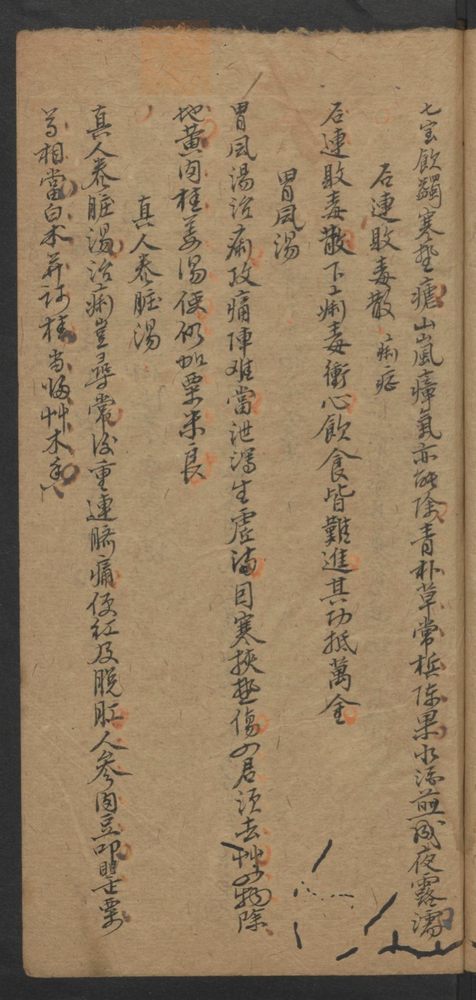 七宝飲蠲寒熱瘧山嵐瘴氣亦能除青朴草常梹陈果水酒煎成夜露濡
石連敗毒散 痢症
石連敗毒散下上痢毒衝心飲食皆難進其功抵萬金
胃風湯
胃風湯治痢攻痛陣难當泄瀉生虚滿因寒挾熱傷四君须去艸四物除
地黄肉桂姜湯使仍加粟米良
真人养脏湯
真人养脏湯治痢豈尋常後重連臍痛便紅及脱肛人參肉豆叩罌粟
等相當白术并訶桂当归艸木香